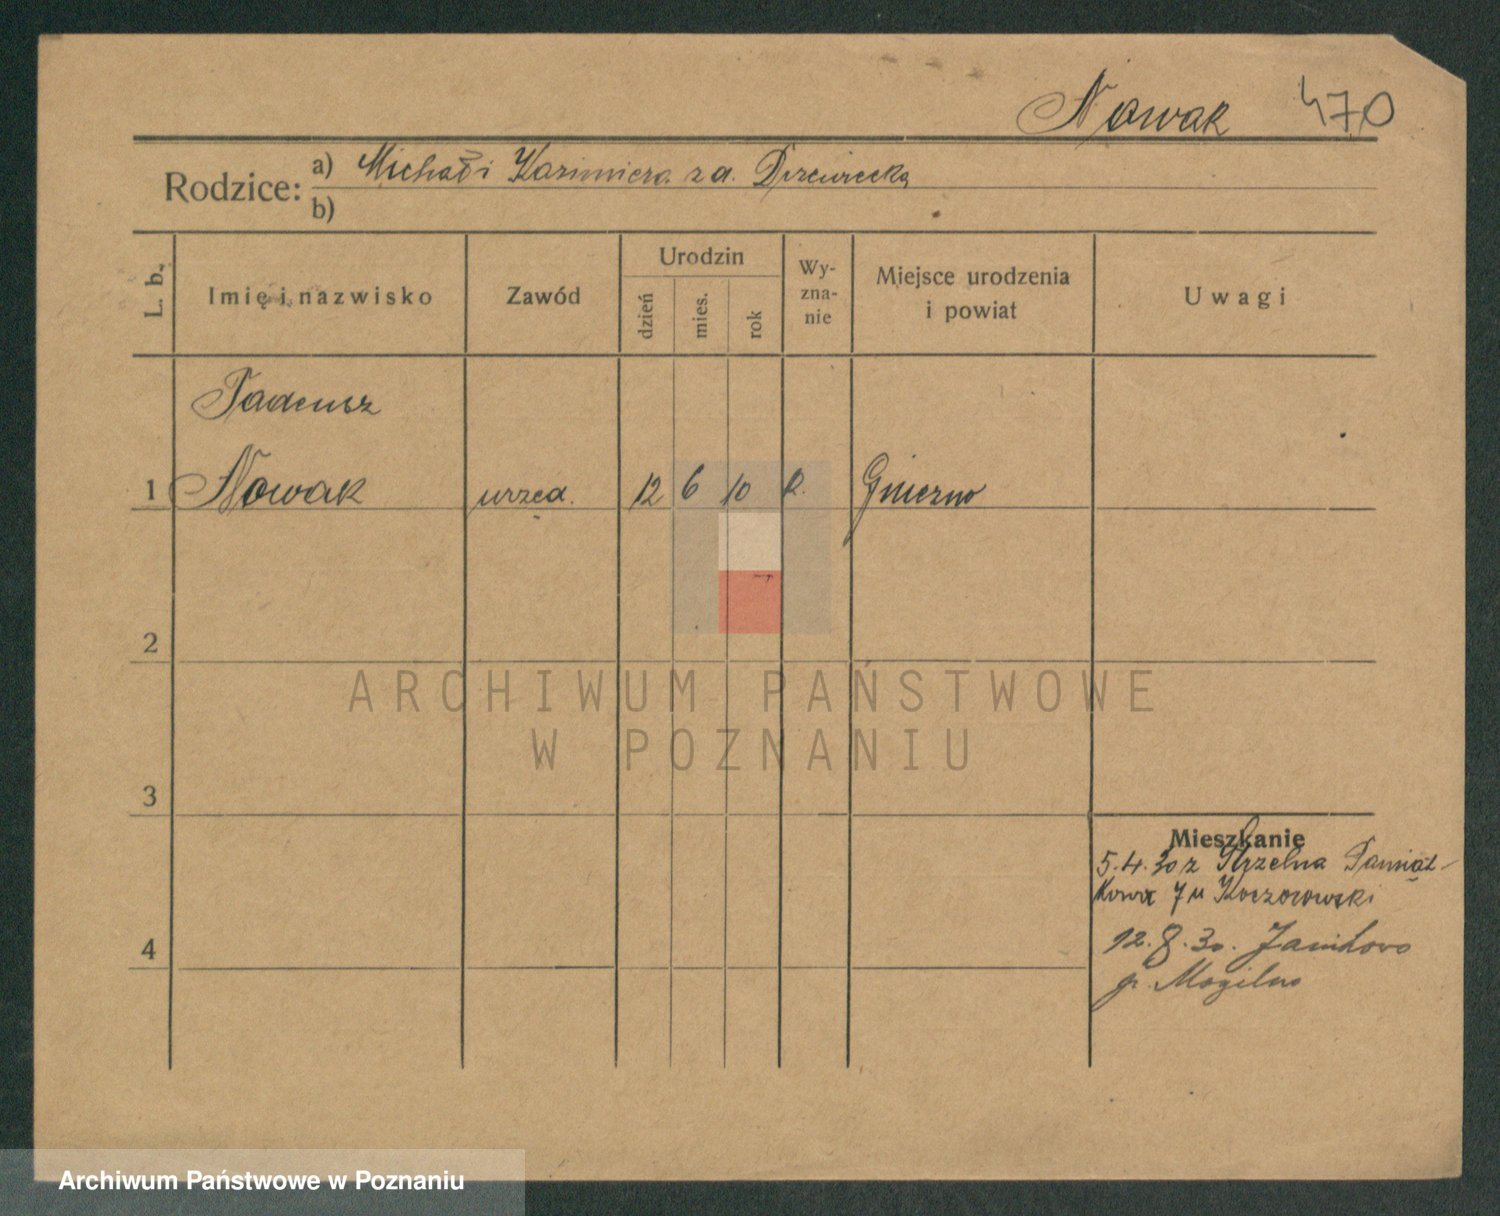 Nowak 470
Rodzice: a) Michał i Kazimiera z d. Drzewiecka
b)
L. b. Imię i nazwisko Zawód Urodzin dzień mies. rok Wy-zna-nie Miejsce urodzenia i powiat Uwagi
Tadeusz
1 Nowak urzęd. 12 6 10 Gniezno
2
ARCHIWUM PAŃSTWOWE
W POZNANIU
3
Mieszkanie
5.4.30 z Strzelna Pamiąt-
kowa 7 u Koczorowski
4 12.8.30. Janikowo
p. Mogilno
Archiwum Państwowe w Poznaniu